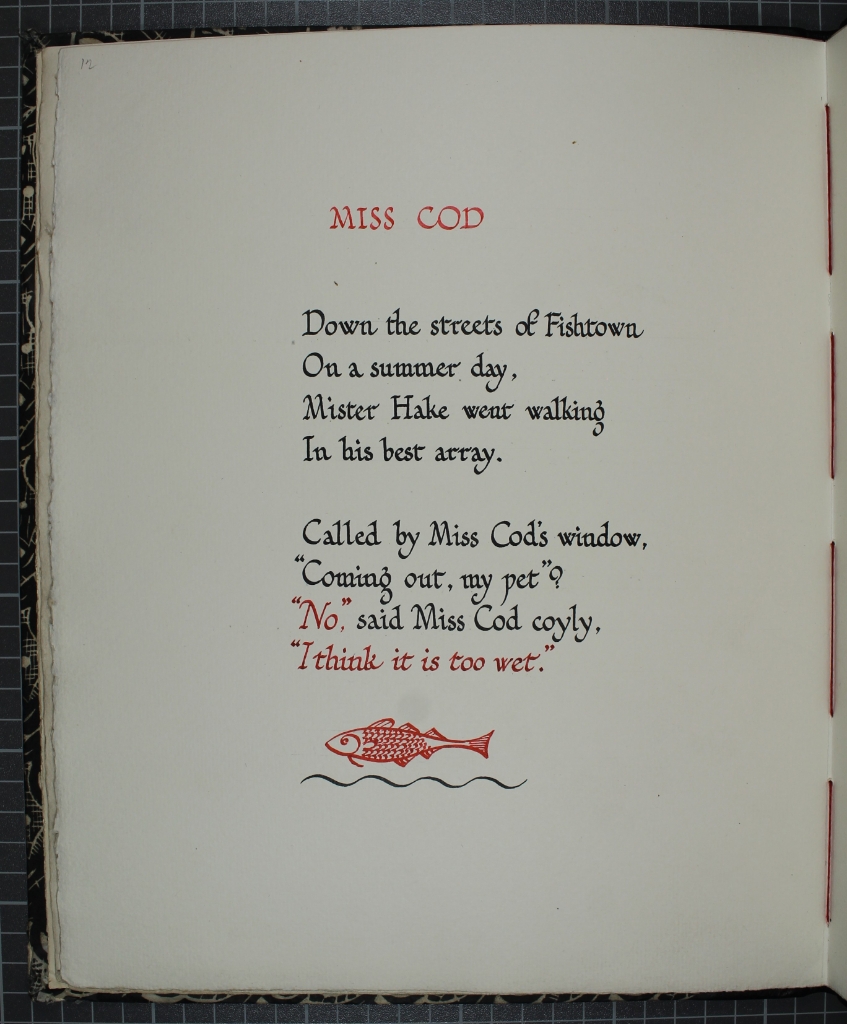 12
MISS COD
Down the streets of Fishtown
On a summer day,
Mister Hake went walking
In his best array.
Called by Miss Cod's window,
“Coming out, my pet”?
“No,” said Miss Cod coyly,
“I think it is too wet.”